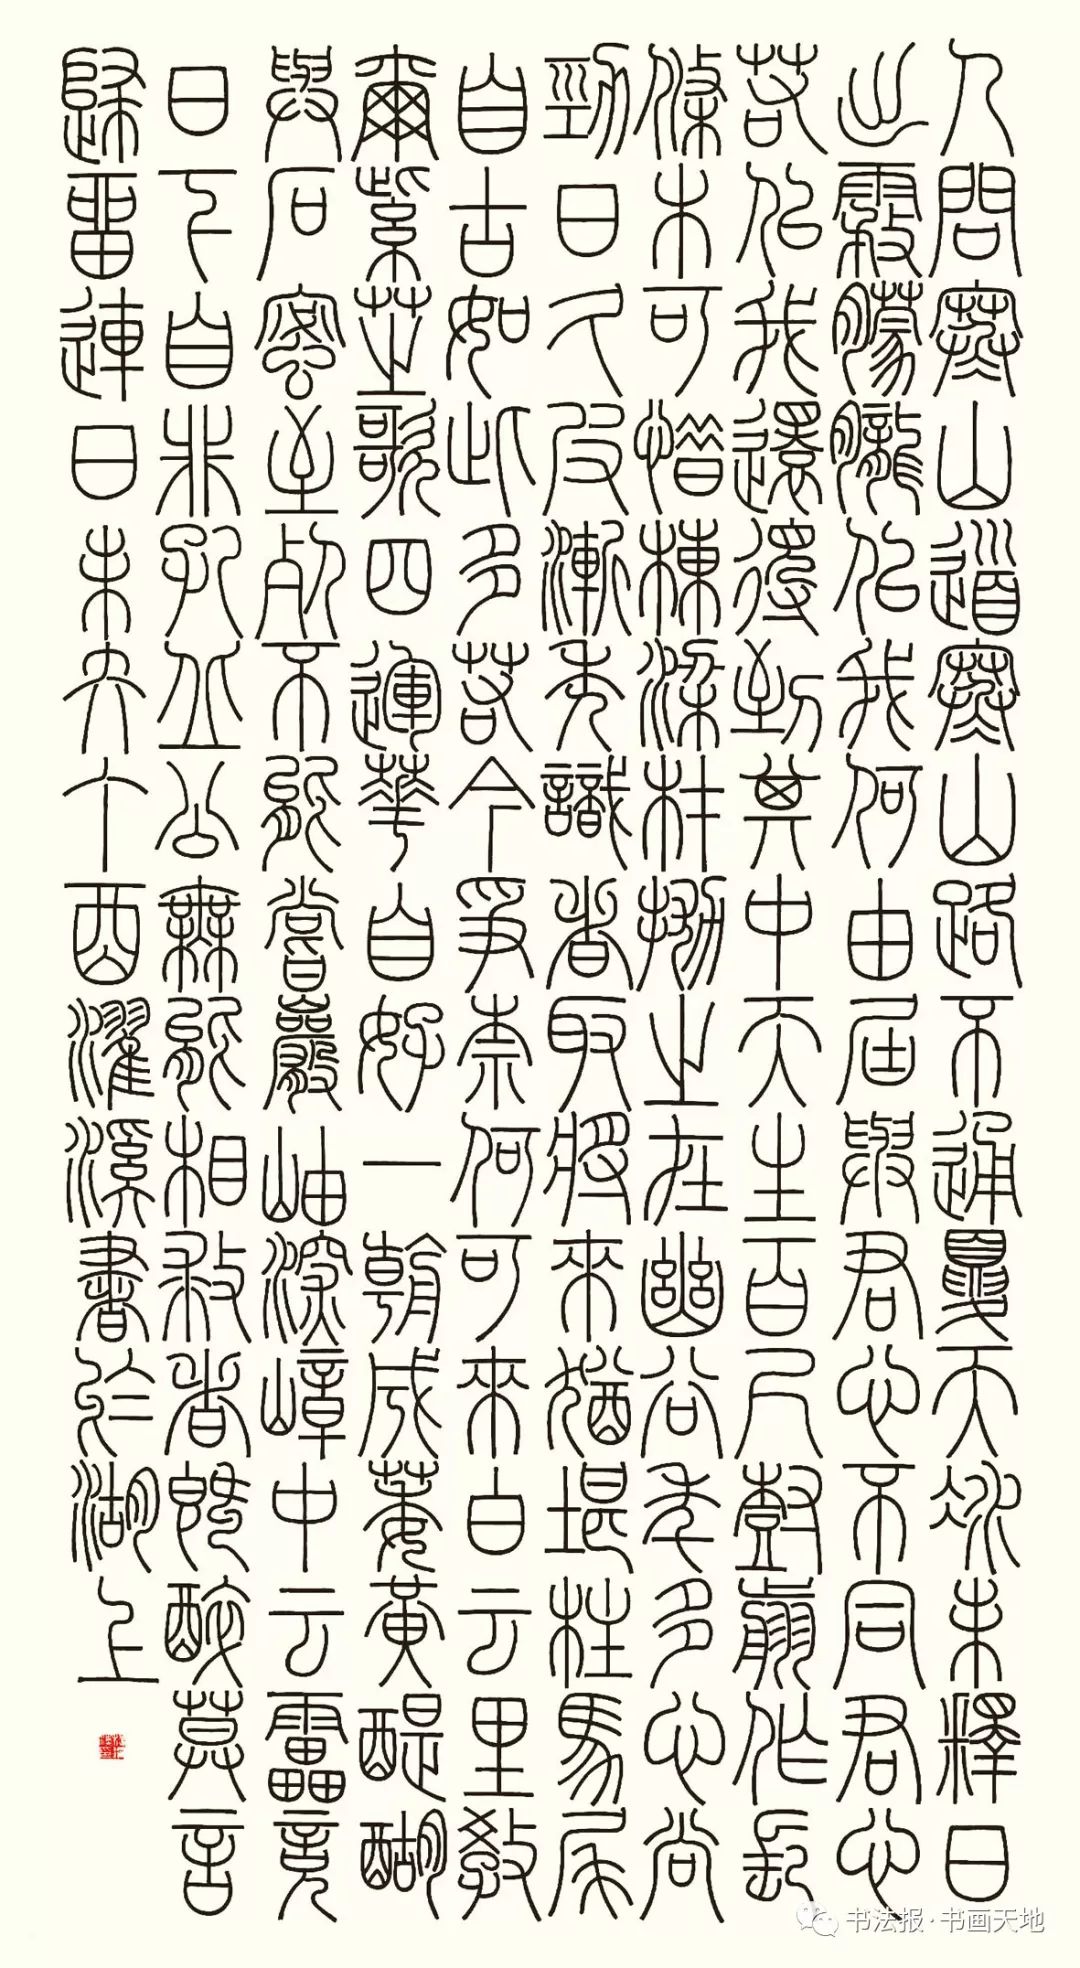 人問寒山道寒山路不通夏天冰未釋日
出霧朦朧似我何由屆與君心不同君心
若似我還得到其中天生百尺樹剪作長
條木可惜棟梁材拋之在幽谷年多心尚
勁日久皮漸禿識者取將來猶堪柱馬屋
自古如此多若今爭奈何可來白云里教
爾紫芝歌四運華自好一朝成萎黃醍醐
與石蜜至死不能嘗巖岫深嶂中云雷竟
日下自非孔丘公無能相救者既醉莫言
歸留連日未央丁酉濯溪書於湖上
书法报·书画天地